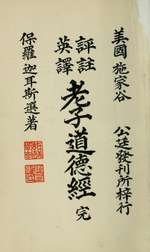 美國 施家谷 公廷發刊所梓行
評註
英譯
老子道德經 完
保羅 迦耳斯選著